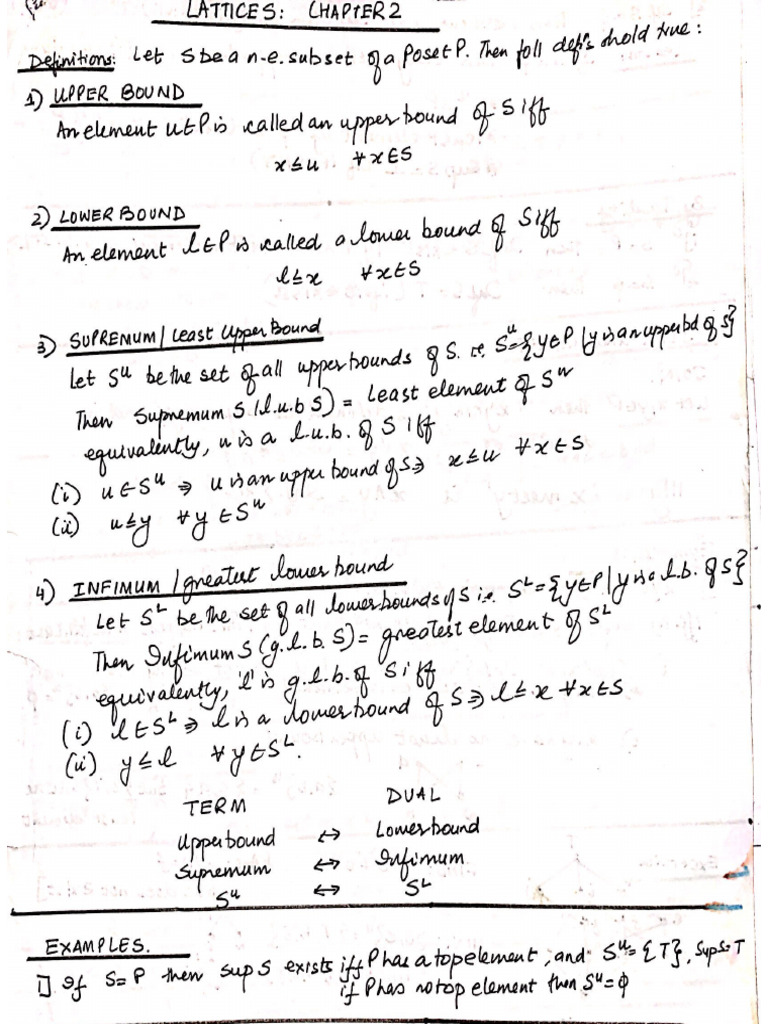 LATTICES: CHAPTER 2
Definitions: Let S be a n-e. subset of a Poset P. Then foll defns hold true:
1) UPPER BOUND
An element u∈P is called an upper bound of S iff
x≤u ∀x∈S
2) LOWER BOUND
An element l∈P is called a lower bound of S iff
l≤x ∀x∈S
3) SUPREMUM/Least Upper Bound
Let Sᵘ be the set of all upper bounds of S. i.e. Sᵘ={y∈P|y is an upper bd of S}
Then Supremum S (l.u.b S) = Least element of Sᵘ
equivalently, u is a l.u.b. of S iff
(i) u∈Sᵘ ⇒ u is an upper bound of S ⇒ x≤u ∀x∈S
(ii) u≤y ∀y∈Sᵘ
4) INFIMUM/greatest lower bound
Let Sᴸ be the set of all lower bounds of S i.e. Sᴸ={y∈P|y is a l.b. of S}
Then Infimum S (g.l.b. S) = greatest element of Sᴸ
equivalently, 'l' is g.l.b. of S iff
(i) l∈Sᴸ ⇒ l is a lower bound of S ⇒ l≤x ∀x∈S
(ii) y≤l ∀y∈Sᴸ.
TERM DUAL
Upper bound ↔ Lower bound
Supremum ↔ Infimum
Sᵘ ↔ Sᴸ
EXAMPLES.
1] If S=P then sup S exists iff P has a top element, and Sᵘ={T}, Sup S=T
if P has no top element then Sᵘ=ϕ